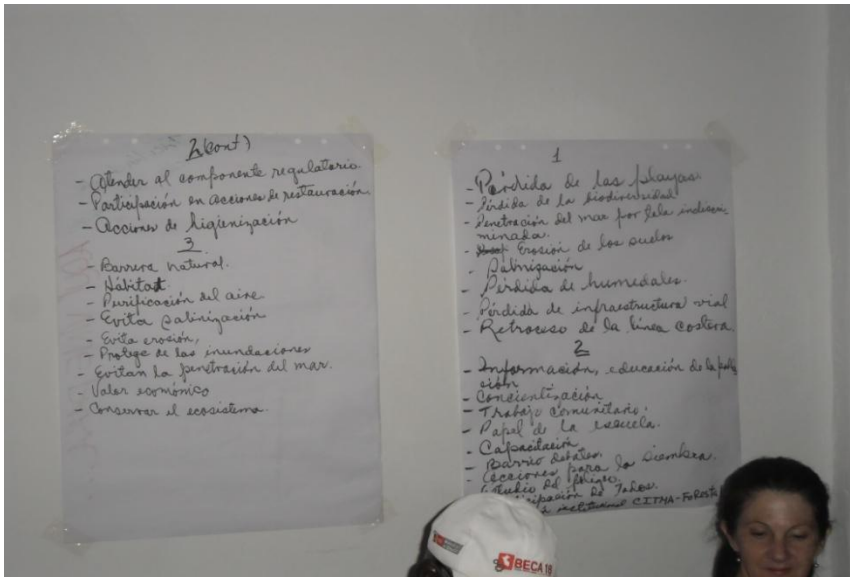 2 (cont)
- Atender al componente regulatorio.
- Participación en acciones de restauración.
- Acciones de higienización
3
- Barrera natural.
- Hábitat.
- Purificación del aire
- Evita salinización
- Evita erosión,
- Protege de las inundaciones
- Evitan la penetración del mar.
- Valor económico
- Conservar el ecosistema.
1
- Pérdida de las playas
- Pérdida de la biodiversidad
- Penetración del mar por tala indiscri-
minada.
- Erosión de los suelos
- Salinización
- Pérdida de humedales.
- Pérdida de infraestructura vial
- Retroceso de la línea costera
2
- Información, educación de la pobla
ción
- Concientización
- Trabajo comunitario.
- Papel de la escuela.
- Capacitación
- Barrio debates.
- Acciones para la siembra.
Estudio del peligro.
cipación de Todos.
institucional CITMA-Foresta
BECA 18